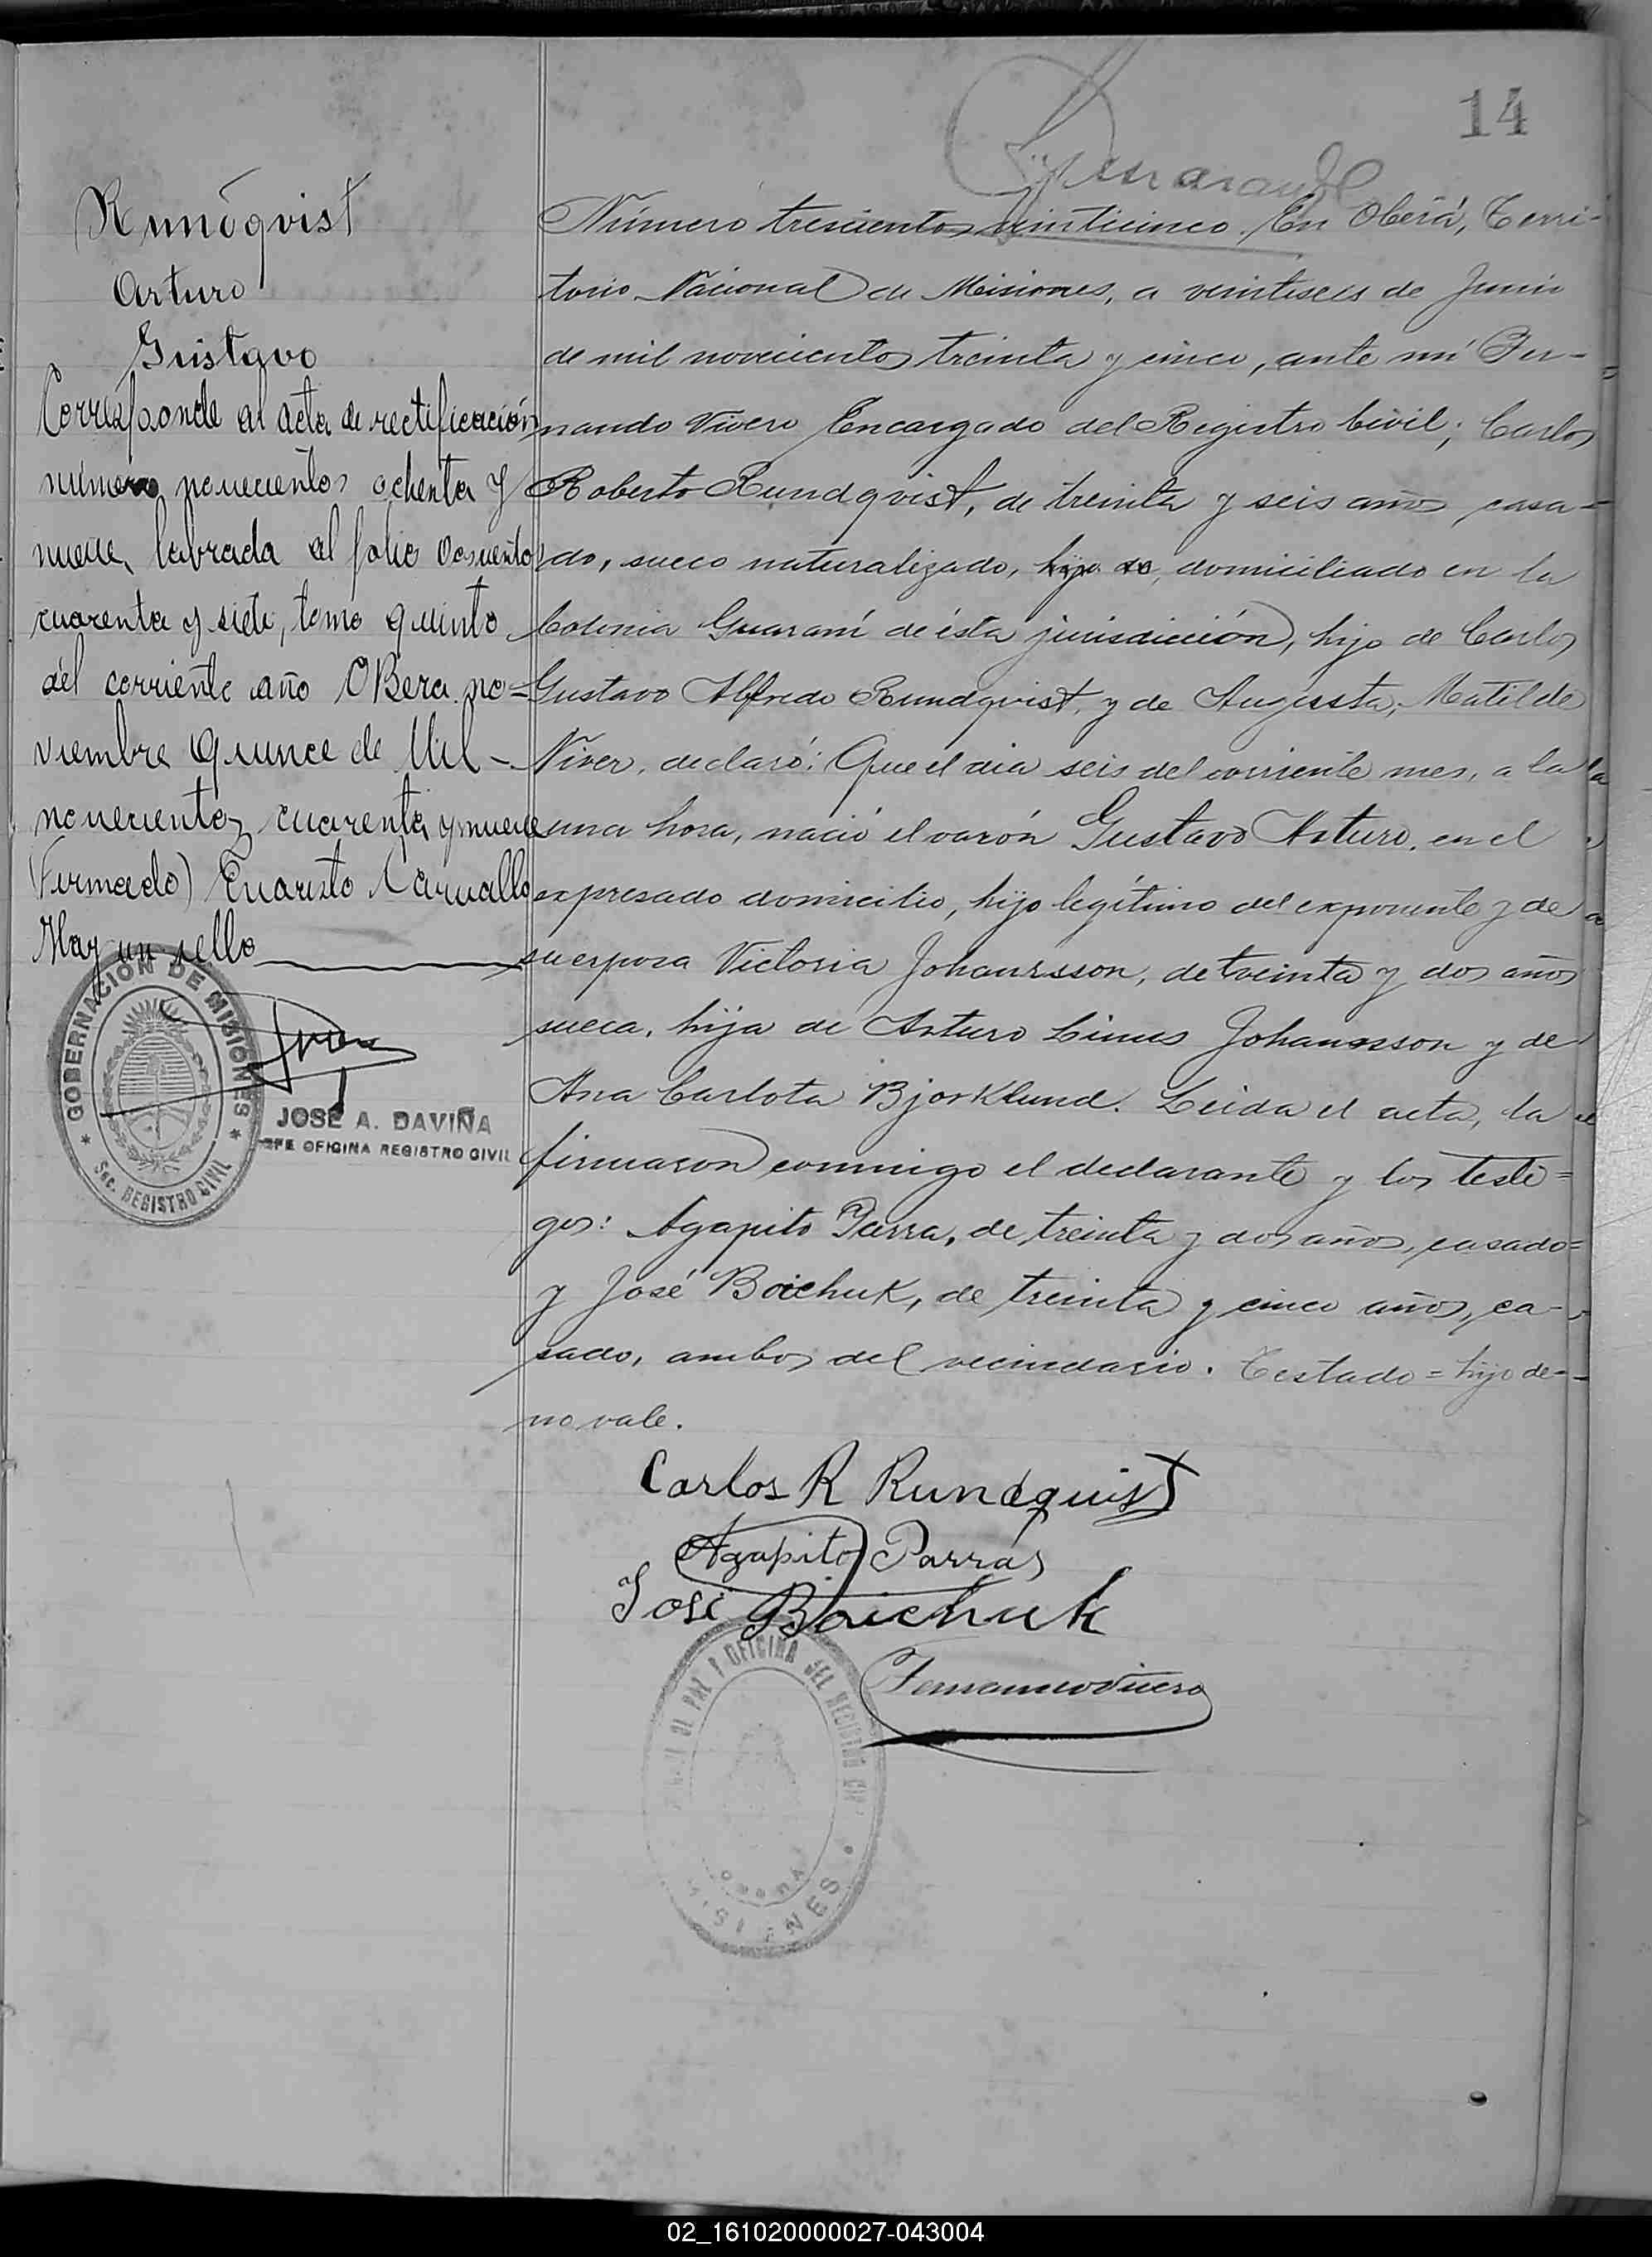 14
Rundqvist
Arturo
Gustavo
Corresponde al acta de rectificación
número novecientos ochenta y
nueve, labrada al folio doscientos
cuarenta y siete, tomo quinto
del corriente año OBera no-
viembre quince de Mil
novecientos cuarenta y nueve
(Firmado) Evaristo Carvallo
Hay un sello
GOBERNACIÓN DE MISIONES
Sec. REGISTRO CIVIL
JOSÉ A. DAVIÑA
JEFE OFICINA REGISTRO CIVIL
Número trescientos veinticinco. En Oberá, Terri-
torio Nacional de Misiones, a veintiseis de Junio
de mil novecientos treinta y cinco, ante mí Fer-
nando Vivero Encargado del Registro Civil; Carlos
Roberto Rundqvist, de treinta y seis años, casa-
do, sueco naturalizado, hijo de, domiciliado en la
Colonia Guaraní de ésta jurisdicción, hijo de Carlos
Gustavo Alfredo Rundqvist, y de Augusta, Matilde
Niver, declaró: Que el dia seis del corriente mes, a la
una hora, nació el varón Gustavo Arturo, en el
expresado domicilio, hijo legítimo del exponente y de
su esposa Victoria Johansson, de treinta y dos años
sueca, hija de Arturo Linus Johansson y de
Ana Carlota Bjorklund. Leida el acta, la
firmaron conmigo el declarante y los testi=
gos: Agapito Parra, de treinta y dos años, casado=
y José Boichuk, de treinta y cinco años, ca-
sado, ambos del vecindario. Testado = hijo de-
no vale.
Carlos R Rundquist
Agapito Parrás
José Boichuk
Fernando Vivero
DE PAZ Y OFICINA DEL REGISTRO CIV
OBERÁ
MISIONES
02_161020000027-043004